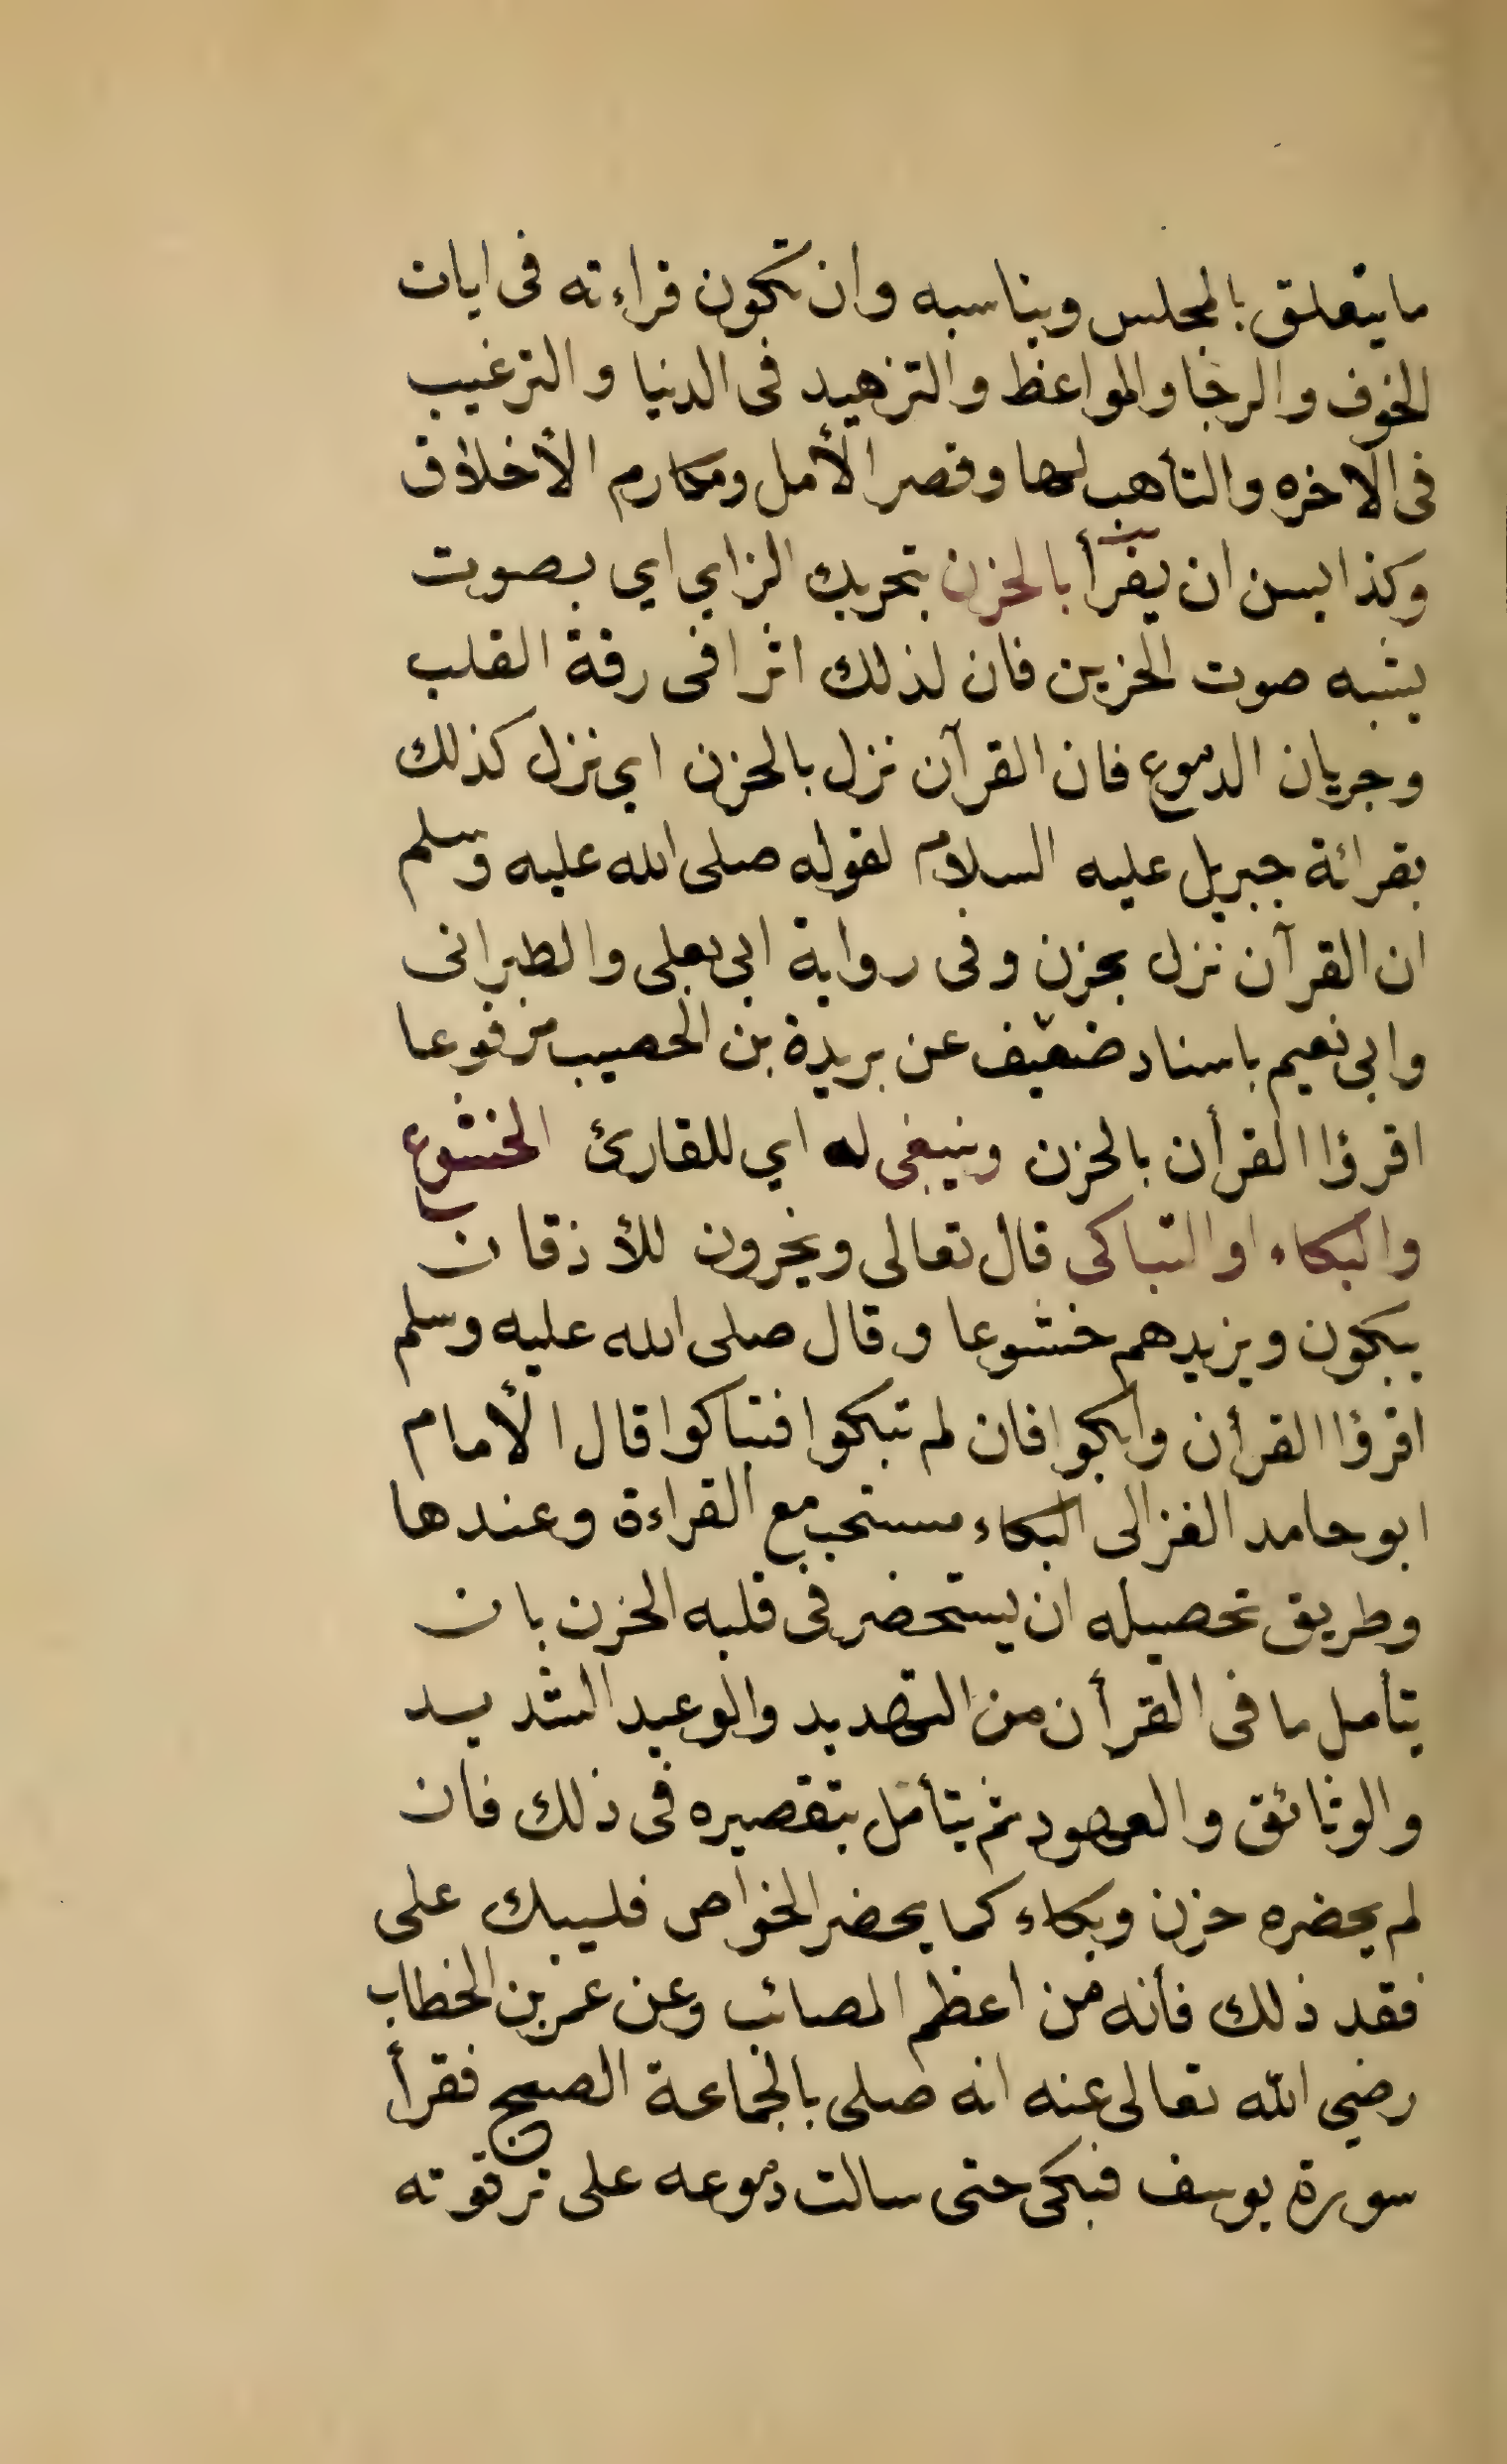 ما يتعلق بالمجلس ويناسبه وان تكون قراءته فى ايات
الخوف والرجا والمواعظ والتزهيد فى الدنيا والترغيب
فى الآخره والتأهب لها وقصر الأمل ومكارم الأخلاق
وكذا يسن ان يقرأ بالحزن بتحريك الزاي اي بصوت
يشبه صوت الحزين فان لذلك اثرا فى رقة القلب
وجريان الدموع فان القرآن نزل بالحزن اي نزل كذلك
بقرائة جبريل عليه السلام لقوله صلى الله عليه وسلم
ان القرآن نزل بحزن وفى رواية ابى يعلى والطبرانى
وابى نعيم باسناد ضعيف عن بريدة بن الحصيب مرفوعا
اقرؤا القرأن بالحزن وينبغى له اي للقارئ الخشوع
والبكاء او التباكى قال تعالى ويخرون للأذقان
يبكون ويزيدهم خشوعا وقال صلى الله عليه وسلم
اقرؤا القرأن وابكوا فان لم تبكوا فتباكوا قال الأمام
ابو حامد الغزالى البكاء مستحب مع القراءة وعندها
وطريق تحصيله ان يستحضر فى قلبه الحزن بان
يتأمل ما فى القرأن من التهديد والوعيد الشديد
والوثائق والعهود ثم يتأمل بتقصيره فى ذلك فان
لم يحضره حزن وبكاء كما يحضر الخواص فليبك على
فقد ذلك فأنه من اعظم المصائب وعن عمر بن الخطاب
رضي الله تعالى عنه انه صلى بالجماعة الصبح فقرأ
سورة يوسف فبكى حتى سالت دموعه على ترقوته